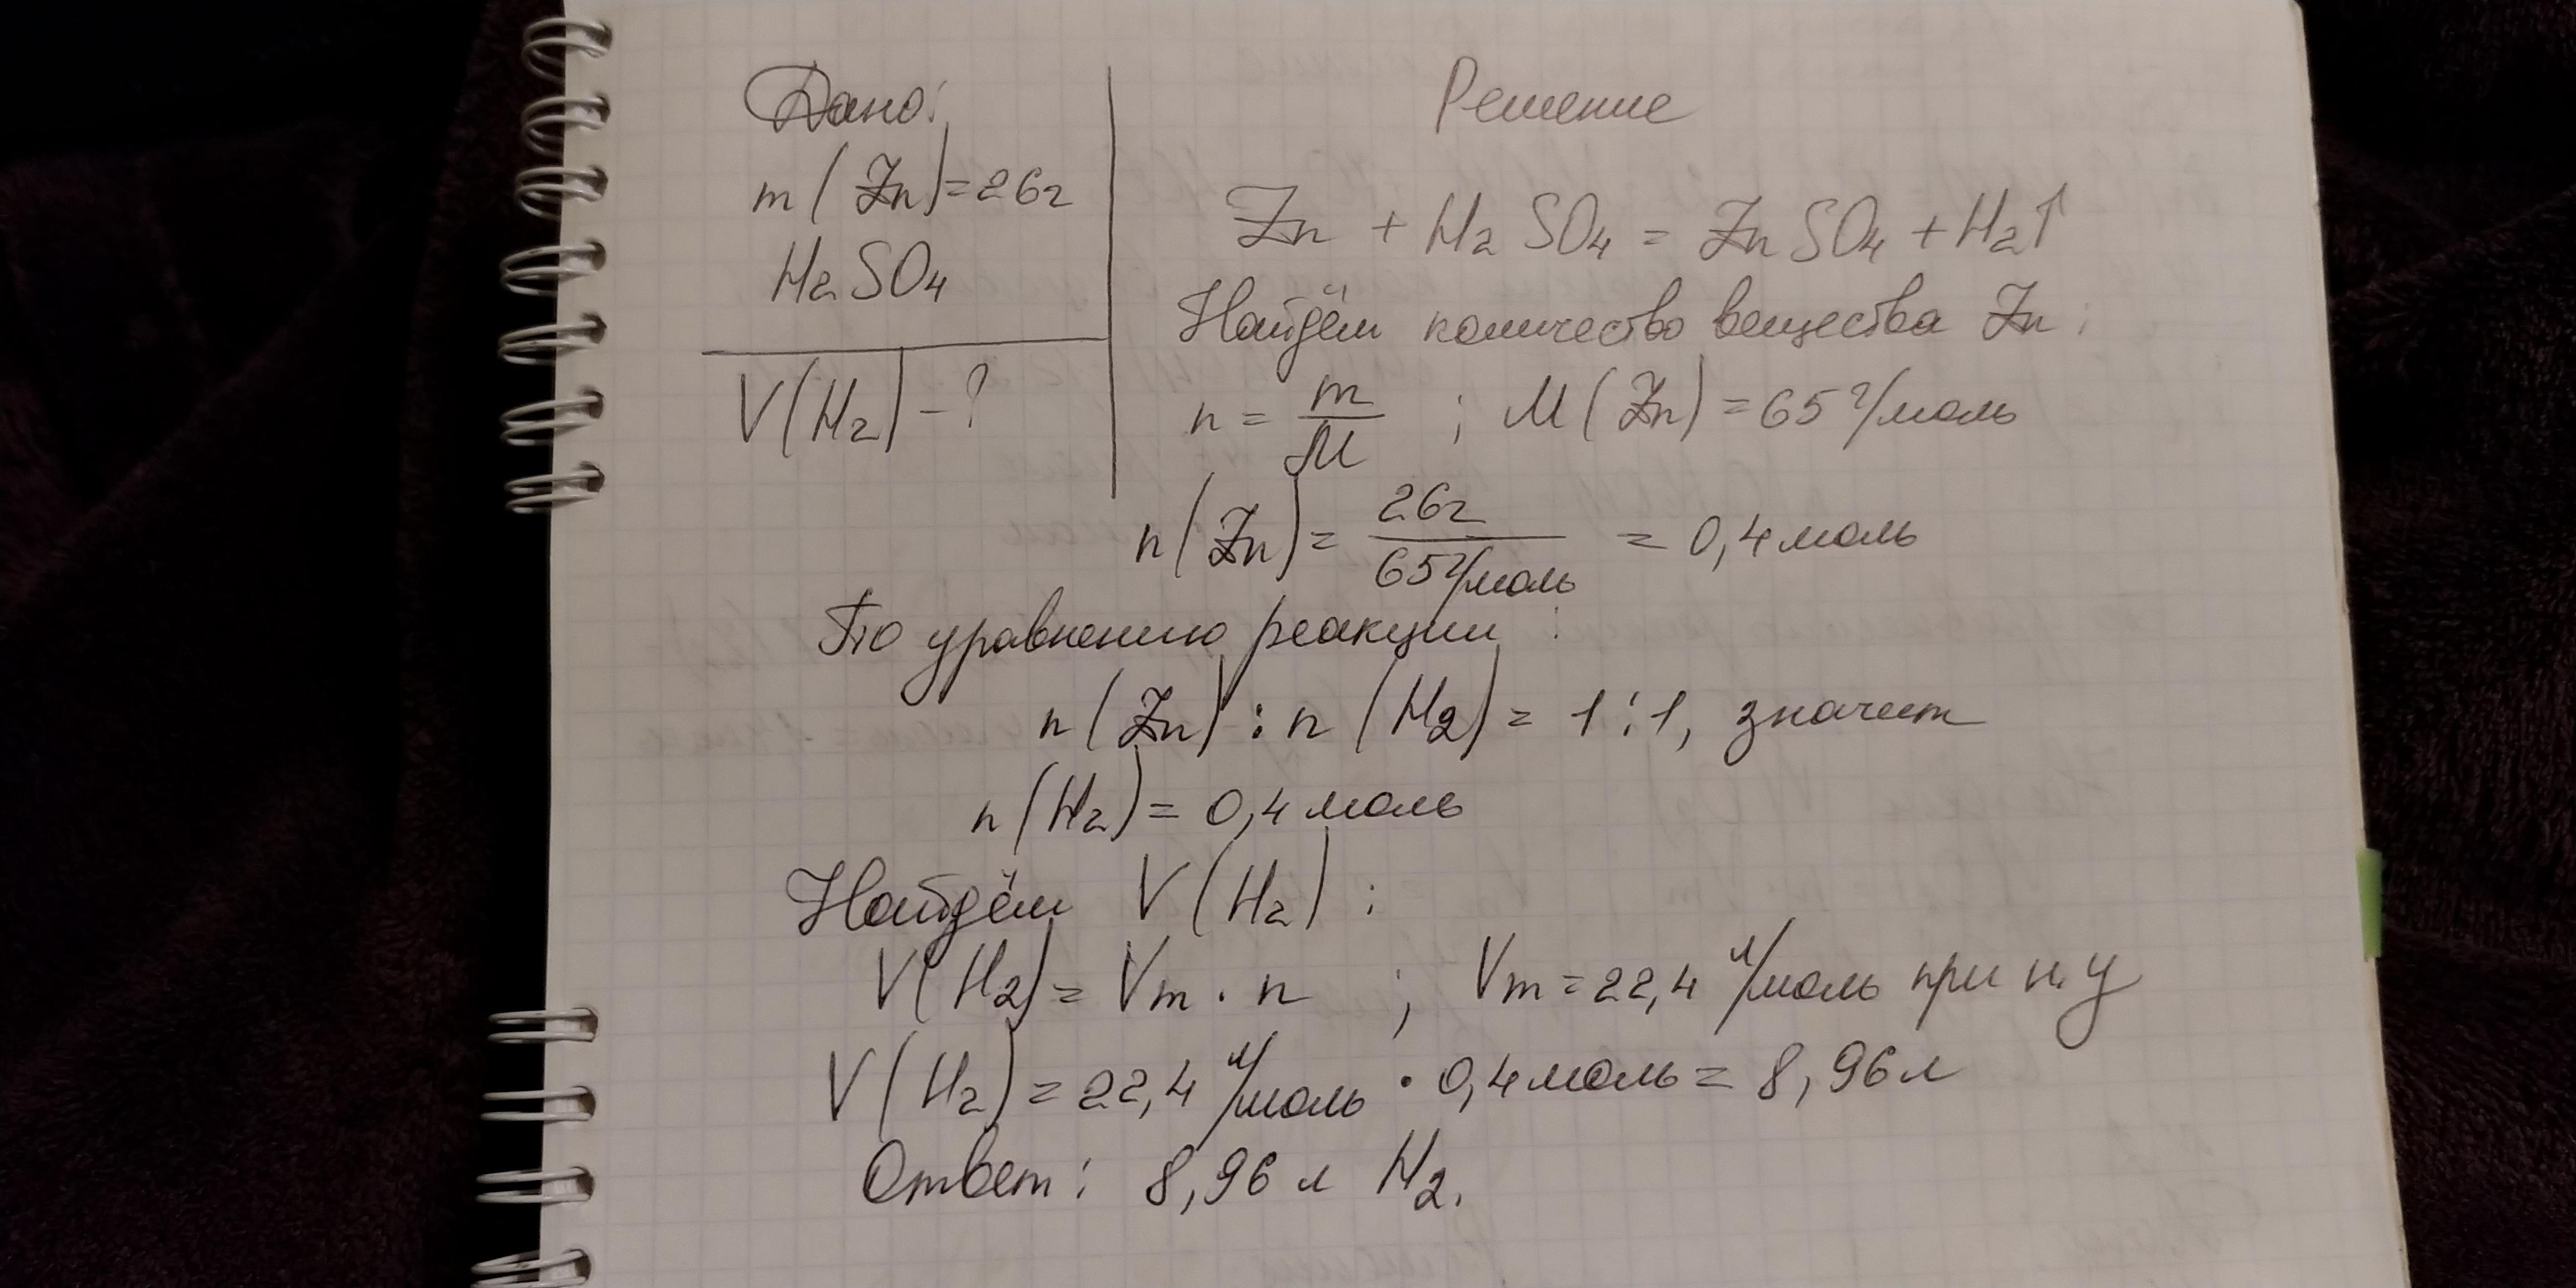 Дано:
m(Zn)=26г
H₂SO₄
V(H₂)-?
Решение
Zn + H₂SO₄ = ZnSO₄ + H₂↑
Найдём количество вещества Zn:
n = m/M ; M(Zn)=65 г/моль
n(Zn)= 26г / 65г/моль = 0,4 моль
По уравнению реакции:
n(Zn) : n(H₂) = 1:1, значит
n(H₂) = 0,4 моль
Найдём V(H₂):
V(H₂)= Vm · n ; Vm = 22,4 л/моль при н.у
V(H₂) = 22,4 л/моль · 0,4 моль = 8,96 л
Ответ: 8,96 л H₂.